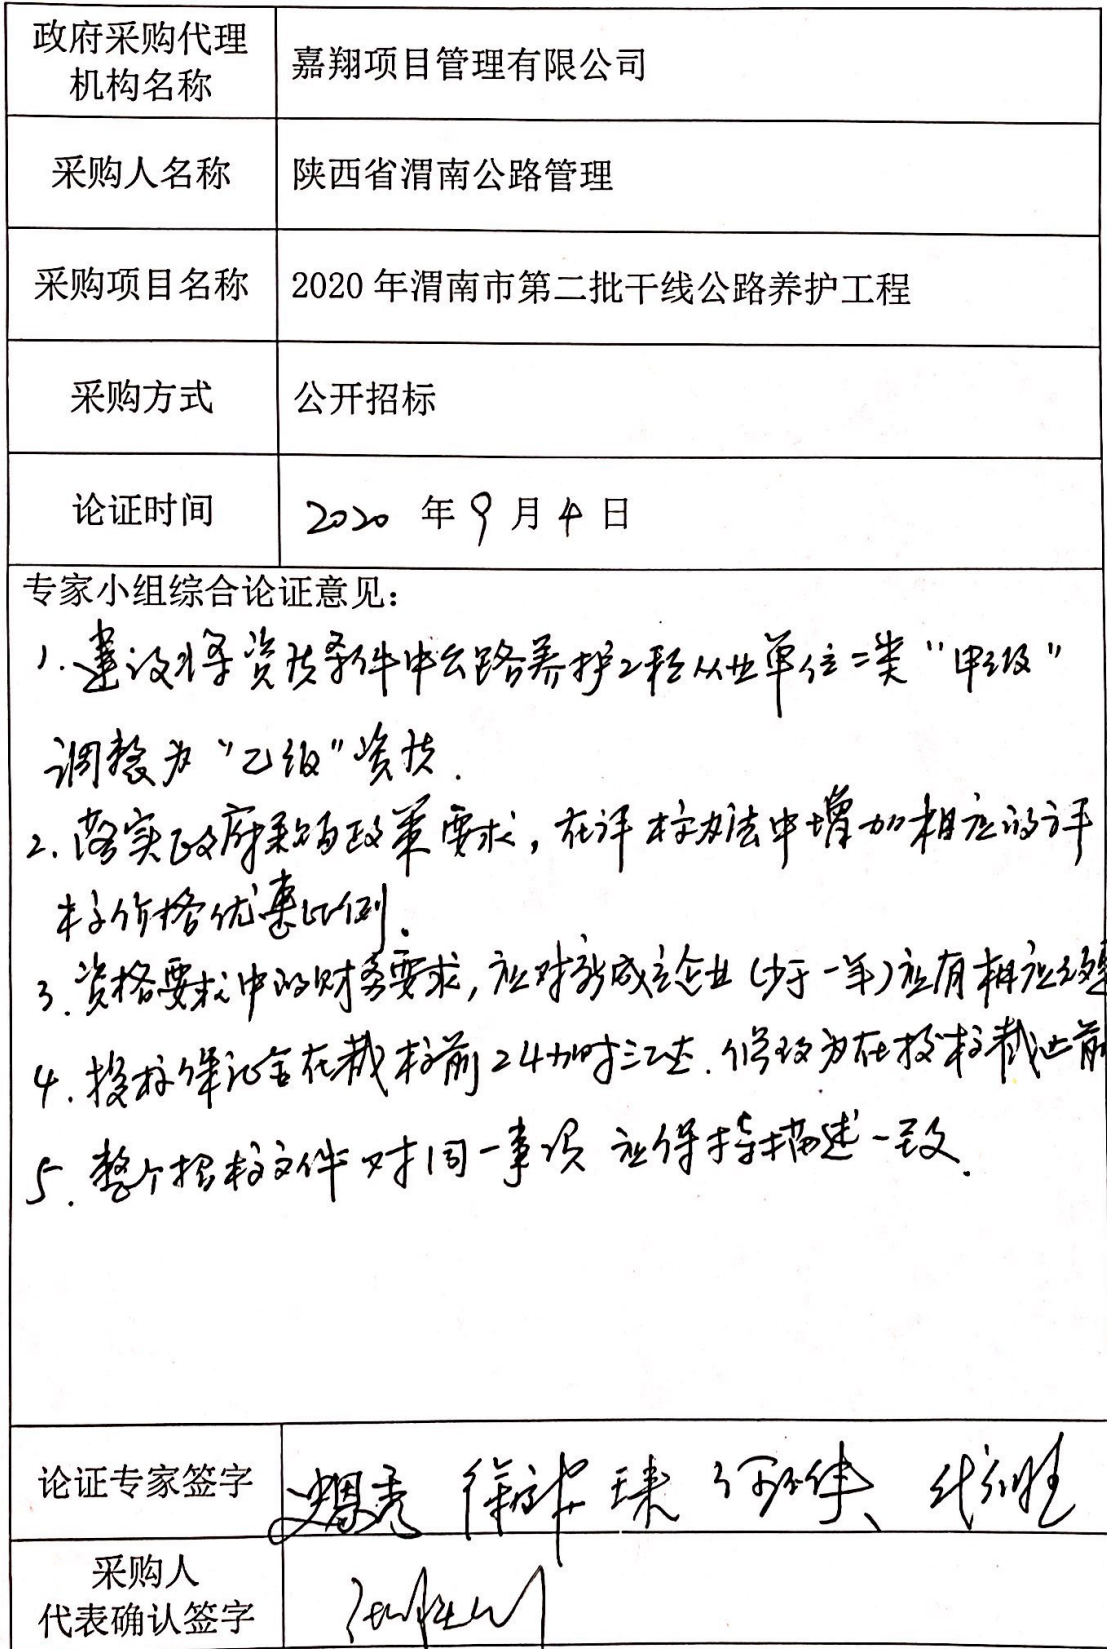 政府采购代理
机构名称
嘉翔项目管理有限公司
采购人名称
陕西省渭南公路管理
采购项目名称
2020年渭南市第二批干线公路养护工程
采购方式
公开招标
论证时间
2020 年 9 月 4 日
专家小组综合论证意见：
1.建议将资质条件中公路养护工程从业单位二类“甲级”
调整为“乙级”资质.
2.落实政府采购政策要求，在评标办法中增加相应的评
标价格优惠比例.
3.资格要求中的财务要求，应对新成立企业(少于一年)应有相应
4.投标保证金在截标前24小时 .修改为在投标截止前
5.整个招标文件对同一事项应保持描述一致.
论证专家签字
采购人
代表确认签字